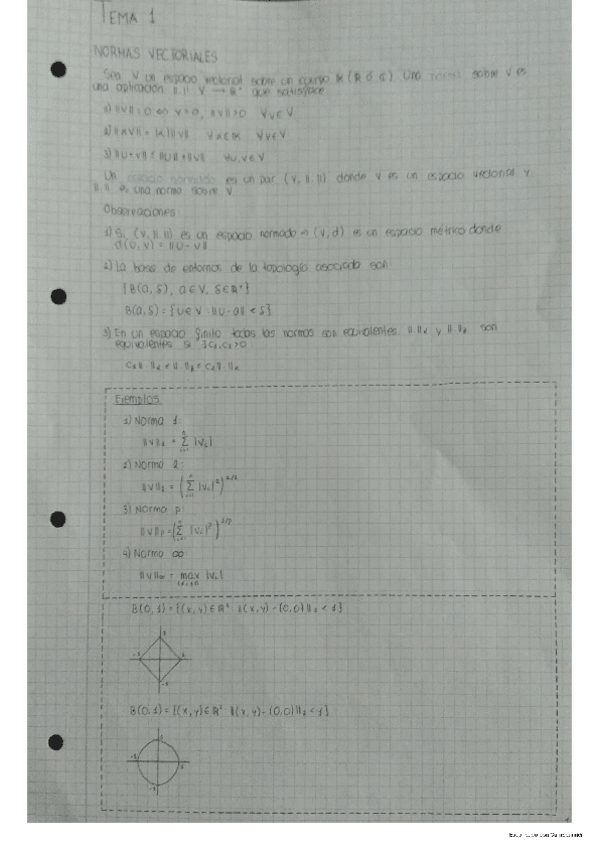 TEMA 1
NORMAS VECTORIALES
Sea V un espacio vectorial sobre un cuerpo K (R ó C). Una norma sobre V es
una aplicación ||·|| V → R⁺ que satisface
1) ||v|| = 0 ⇔ v = 0, ||v|| > 0 ∀v ∈ V
2) ||αv|| = |α| ||v|| ∀α ∈ K ∀v ∈ V
3) ||u+v|| ≤ ||u|| + ||v|| ∀u, v ∈ V
Un espacio normado es un par (V, ||·||) donde V es un espacio vectorial y
||·|| es una norma sobre V
Observaciones
1) Si (V, ||·||) es un espacio normado ⇒ (V, d) es un espacio métrico donde
d(u, v) = ||u - v||
2) La base de entornos de la topología asociada son
{B(a, δ), a ∈ V, δ ∈ R⁺}
B(a, δ) = {u ∈ V : ||u - a|| < δ}
3) En un espacio finito todas las normas son equivalentes. ||·||α y ||·||β son
equivalentes si ∃C₁, C₂ > 0
C₁||·||α ≤ ||·||β ≤ C₂||·||α
Ejemplos
1) Norma 1:
||v||₁ = Σ |vᵢ|
2) Norma 2:
||v||₂ = (Σ |vᵢ|²)^1/2
3) Norma p:
||v||p = (Σ |vᵢ|^p)^1/p
4) Norma ∞
||v||∞ = max |vᵢ|
B(0, 1) = {(x, y) ∈ R² : ||(x, y) - (0, 0)||₁ < 1}
B(0, 1) = {(x, y) ∈ R² ||(x, y) - (0, 0)||₂ < 1}